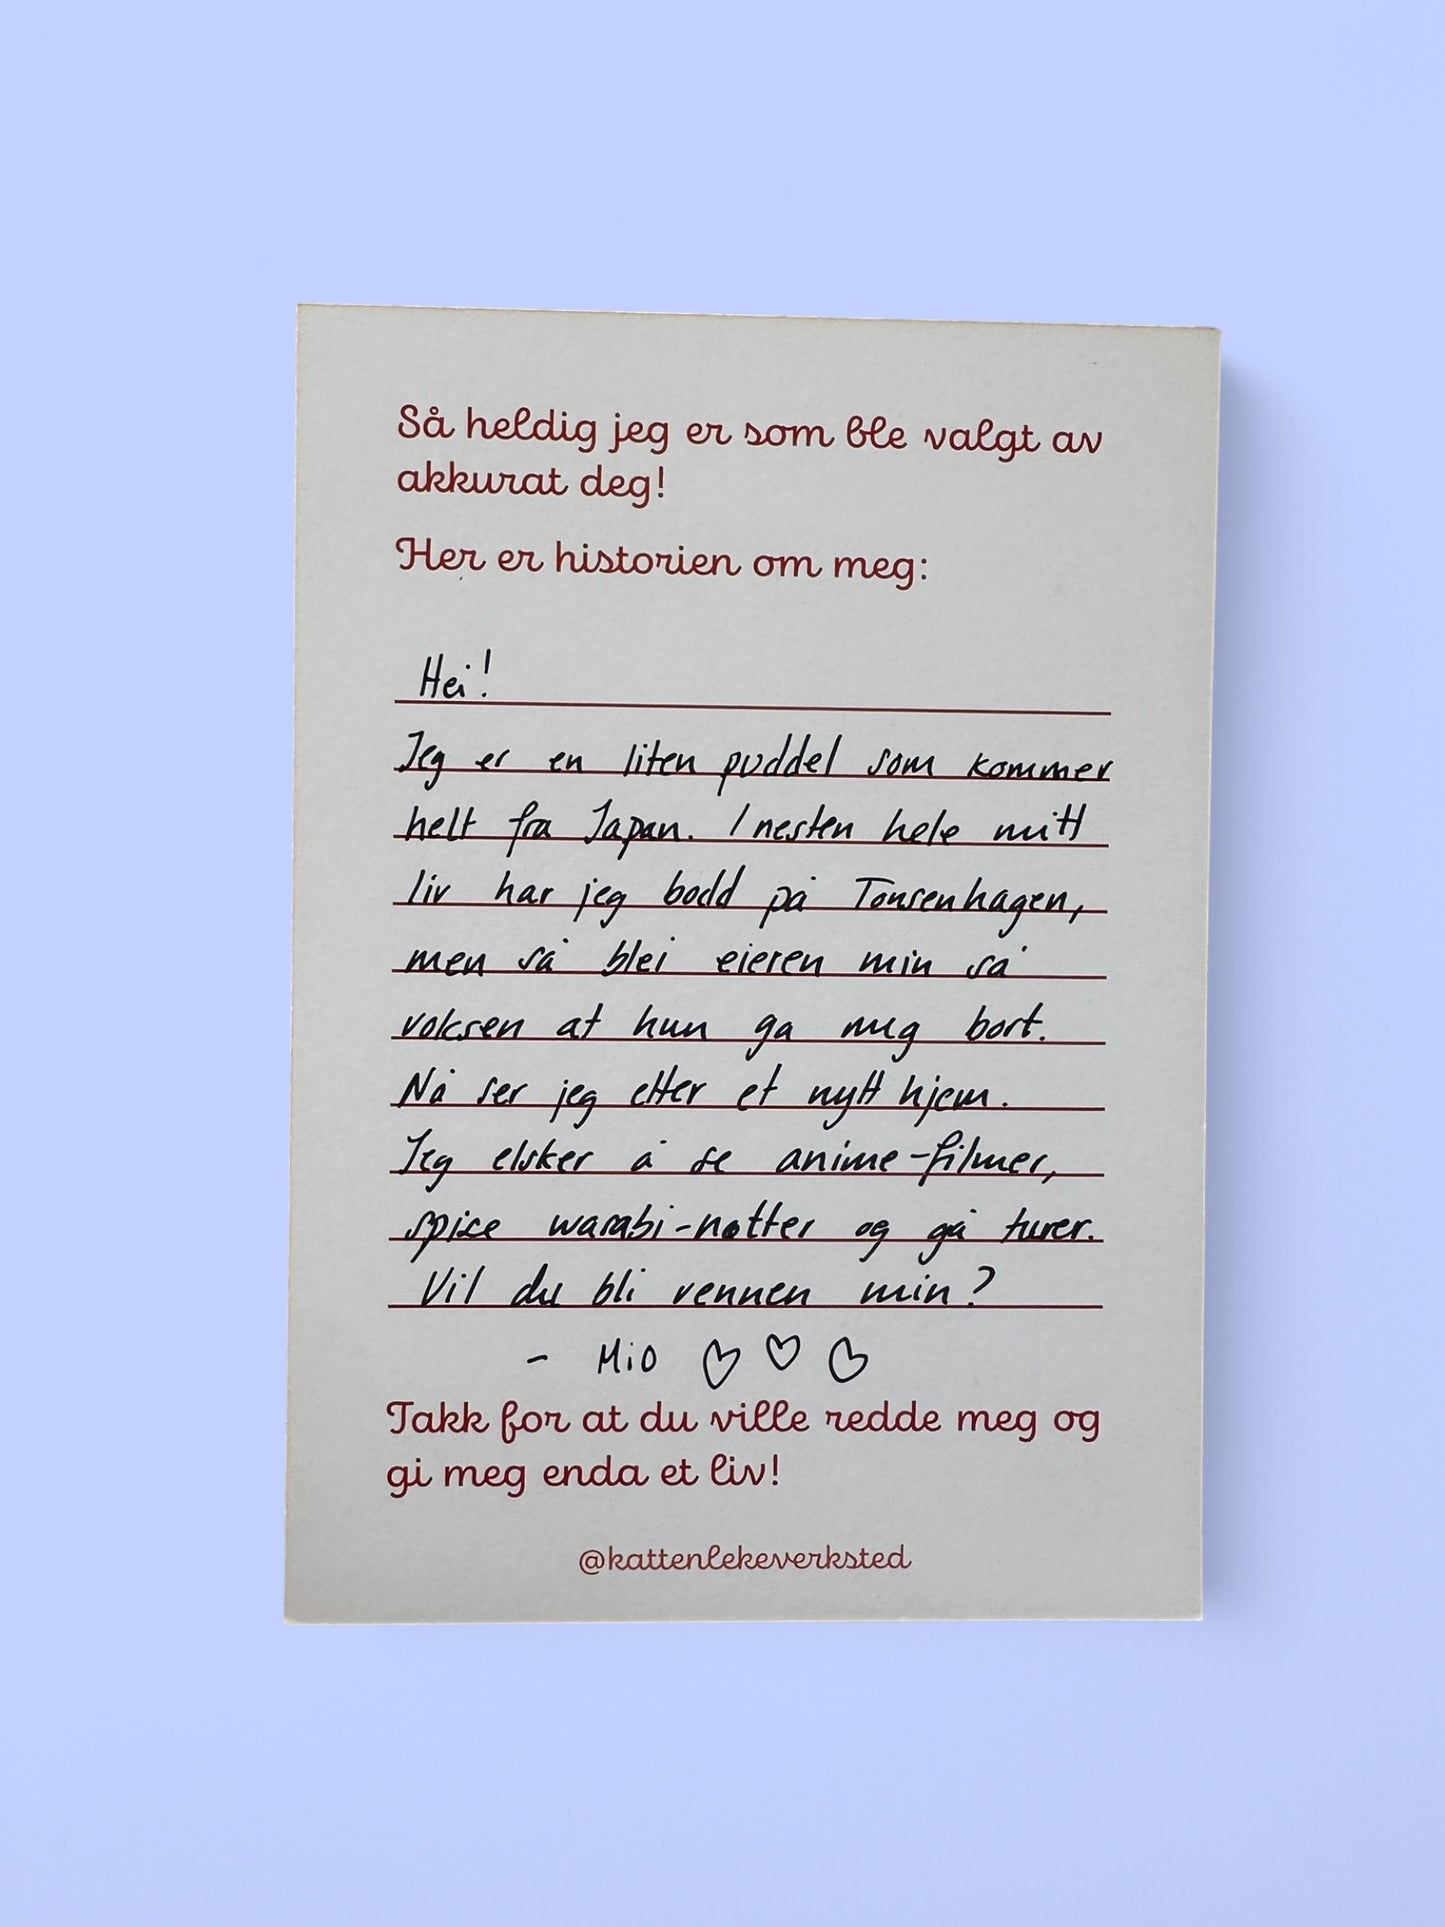 Så heldig jeg er som ble valgt av
akkurat deg!
Her er historien om meg:
Hei!
Jeg er en liten puddel som kommer
helt fra Japan. I nesten hele mitt
liv har jeg bodd på Tonsenhagen,
men så blei eieren min så
voksen at hun ga meg bort.
Nå ser jeg etter et nytt hjem.
Jeg elsker å se anime-filmer,
spise wasabi-nøtter og gå turer.
Vil du bli vennen min?
- Mio ♡ ♡ ♡
Takk for at du ville redde meg og
gi meg enda et liv!
@kattenlekeverksted